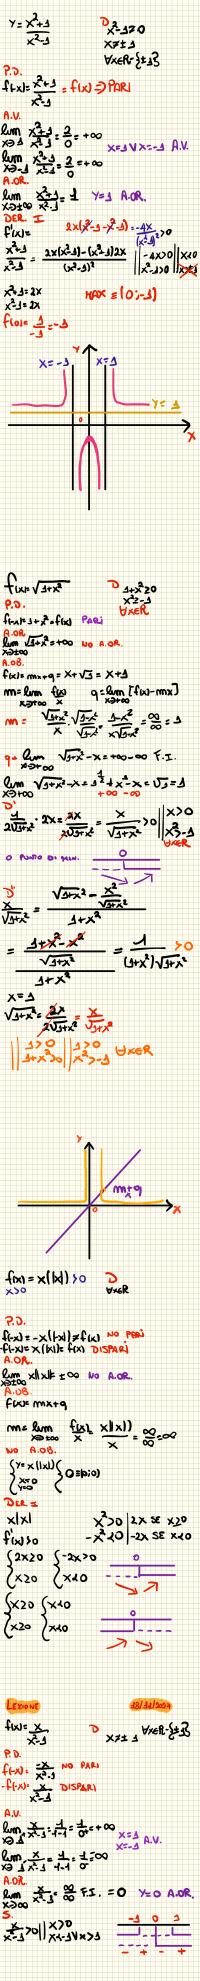 y = x²+1 / x²-1
D x²-1≠0
x≠±1
∀x∈R-{±1}
P.D.
f(-x) = x²+1 / x²-1 = f(x) ⇒ PARI
A.V.
lim x→1 x²+1 / x²-1 = 2/0 = +∞
lim x→-1 x²+1 / x²-1 = 2/0 = +∞
x=1 ∨ x=-1 A.V.
A.OR.
lim x→±∞ x²+1 / x²-1 = 1 y=1 A.OR.
DER. I
f'(x) =
x²+1 / x²-1 = 2x(x²-1)-(x²+1)2x / (x²-1)²
x²+1 = 2x
x²-1 = 2x
MAX ≡ (0;-1)
f(0) = 1/-1 = -1
y
x=-1
x=1
y=1
0
x
f(x) = √1+x²
D 1+x²≥0
x²≥-1
∀x∈R
P.D.
f(-x) = 1+x² = f(x) PARI
A.OR
lim x→±∞ √1+x² = +∞ NO A.OR.
A.OB.
f(x) = mx+q = x+√1 = x+1
m = lim x→+∞ f(x)/x q = lim x→+∞ [f(x)-mx]
q = lim x→+∞ √1+x² - x = +∞-∞ F.I.
D'
1 / 2√1+x² · 2x = 2x / 2√1+x² = x / √1+x² >0 || x>0
x²>-1
∀x∈R
0 PUNTO DI MIN.
0
D''
x / √1+x² = √1+x² - x² / √1+x² / 1+x²
= 1+x²-x² / √1+x² / 1+x² = 1 / (1+x²)√1+x² >0
x=1
√1+x² = 2x / 2√1+x² = x / √1+x²
|| 1>0 1+x²>0 || 1>0 x²>-1 ∀x∈R
y
m+q
x
0
x
f(x) = x(|x|) >0
x>0
D
∀x∈R
P.D.
f(-x) = -x(|-x|) ≠ f(x) NO PARI
-f(-x) = x(|x|) = f(x) DISPARI
A.OR.
lim x→±∞ x|x| = ±∞ NO A.OR.
A.OB.
f(x) = mx+q
m = lim x→±∞ f(x)/x = x(|x|)/x = ∞/∞ = ∞
NO A.OB.
{ y=x(|x|) x=0 y=0 { 0≡(0;0)
DER I
x|x|
x²>0 | 2x SE x≥0
-x²<0 | -2x SE x<0
f'(x)>0
{ 2x≥0 x≥0 { -2x>0 x<0
0
{ x≥0 x≥0 { x<0 x<0
0
LEZIONE
18/12/2024
f(x) = x / x²-1
D x≠±1 ∀x∈R-{±1}
P.D.
f(-x) = -x / x²-1 NO PARI
-f(-x) = x / x²-1 DISPARI
A.V.
lim x→1 x / x²-1 = 1 / 1-1 = 1/0 = +∞
x=1
x=-1 A.V.
A.OR.
lim x→±∞ x / x²-1 = ∞/∞ F.I. = 0 y=0 A.OR.
S.
x / x²-1 >0 || x>0
x<-1 ∨ x>1
-1 0 1
- + - +